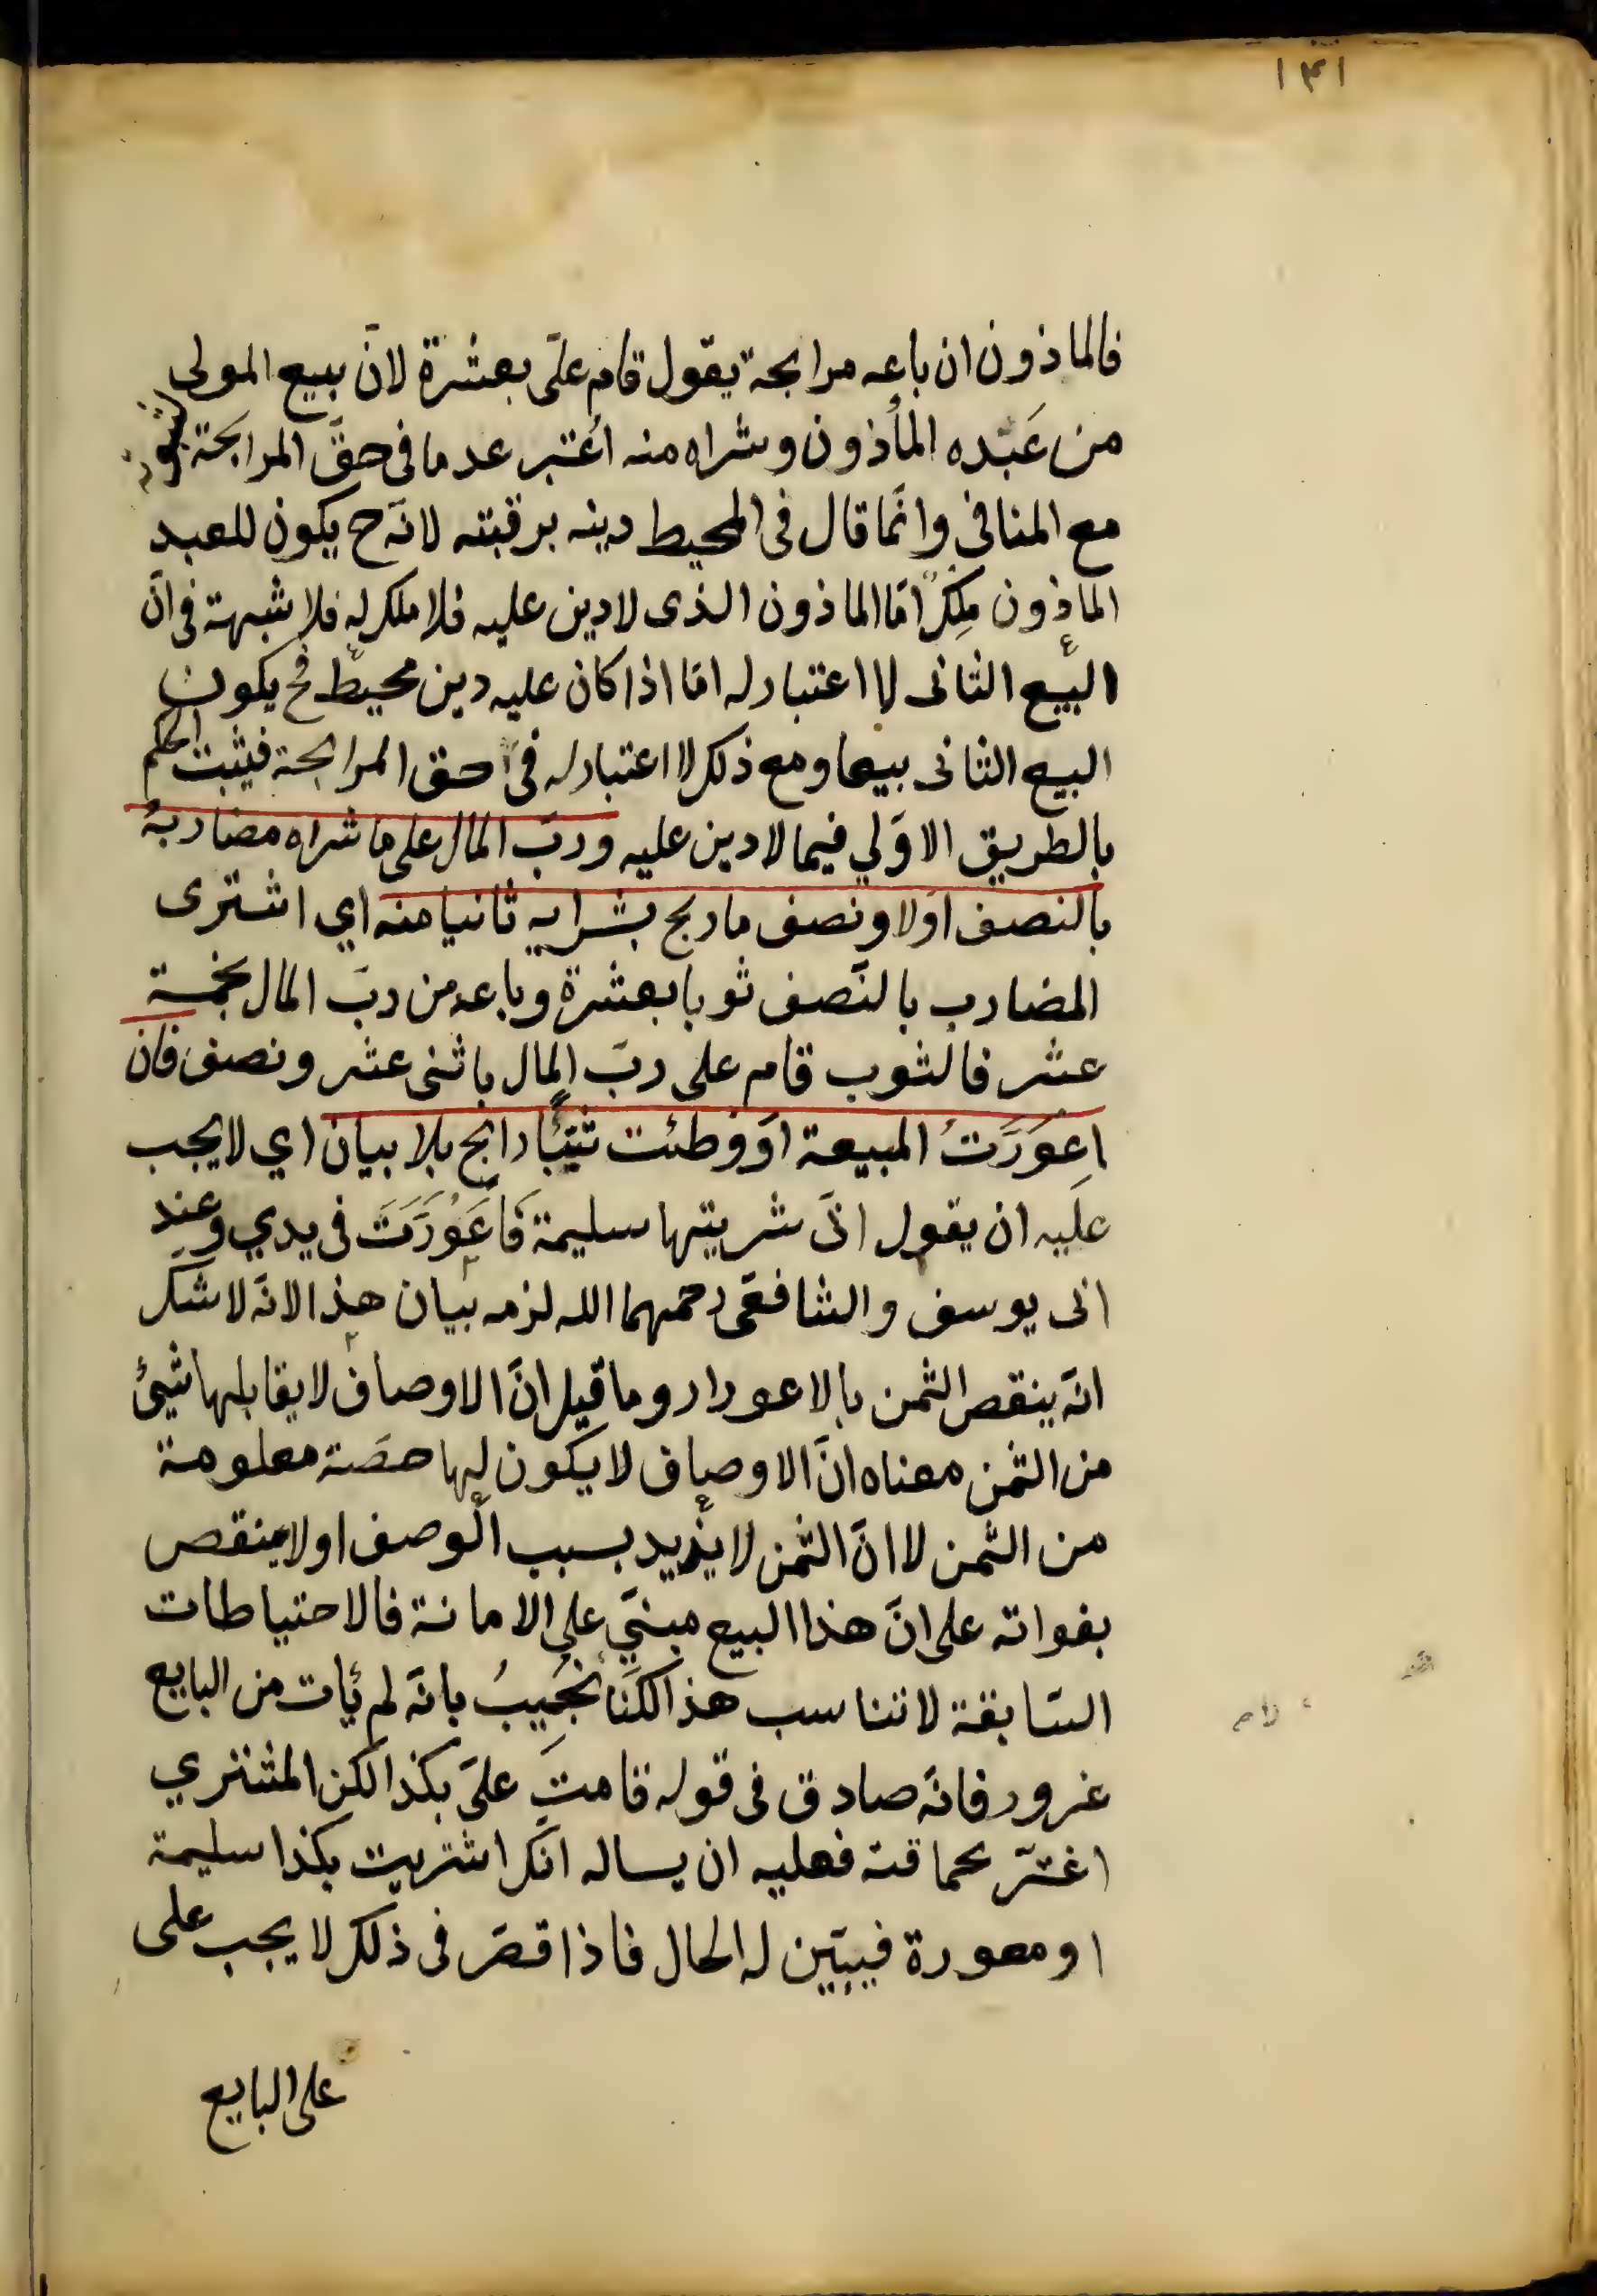 ١٣١
فالماذون ان باعه مرابحة يقول قام علىّ بعشرة لانّ بيع المولى
من عَبْده المأذون وشراه منه اعُتبر عدما فى حقّ المرابحة لثبوته
مع المنافى وانّما قال فى المحيط دينه برقبته لانّه ح يكون للعبد
الماذون مِلكٌ امّا الماذون الذى لا دين عليه فلا ملك له فلا شبهة فى انّ
البيع الثانى لا اعتبار له امّا اذا كان عليه دين محيط فح يكون
البيع الثانى بيعا ومع ذلك لا اعتبار له فى حق المرابحة فيثبت الحكم
بالطريق الاوّلي فيما لا دين عليه وربّ المال على ما شراه مضاربهُ
بالنصف اولا ونصف ما ربح بشرايه ثانيا منه اي اشترى
المضارب بالنّصف ثوبا بعشرة وباعه من ربّ المال بخمسة
عشر فالثوب قام على ربّ المال باثنى عشر ونصف فان
اعوَرَّتْ المبيعة اوَ وطئت ثيّبا رابح بلا بيان اي لا يجب
عليه ان يقول انّى شريتها سليمة فَاعَوْرَّتَ فى يدي وعند
ابى يوسف والشافعى رحمهما الله لزمه بيان هذا لانّه لا شكّ
انّه ينقص الثمن بالاعورار وما قيل انّ الاوصاف لا يقابلها شيئ
من الثمن معناه انّ الاوصاف لا يكون لها حصّة معلومة
من الثمن لا انّ الثمن لا يزيد بسبب الوصف او لا ينقص
بفواته على انّ هذا البيع مبنىّ على الامانة فالاحتياطات
السّابقة لا تناسب هذا لكنّا نُجيبُ بانّه لم يأت من البايع
غرور فانّه صادق فى قوله قامت علىّ بكذا لكن المشتري
اغترّ بحماقته فعليه ان يساله انّك اشتريت بكذا سليمة
او معورة فيبيّن له الحال فاذا قصّر فى ذلك لا يجب على
على البايع